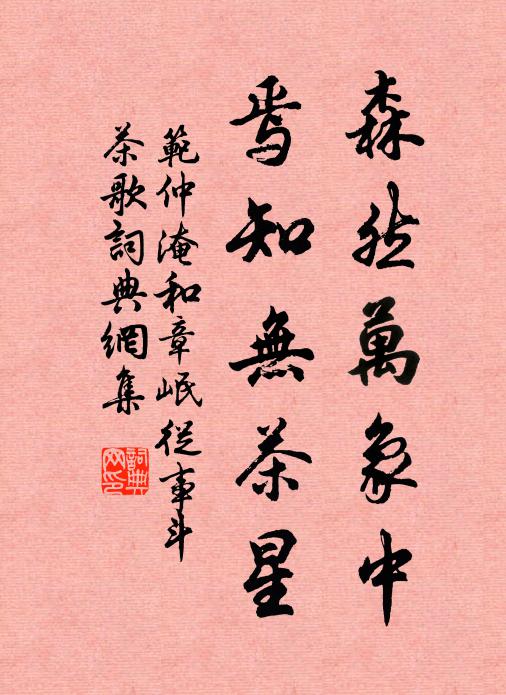 森然萬象中
焉知無茶星
範仲淹和章岷從事斗
茶歌詞典網集
詞典网印